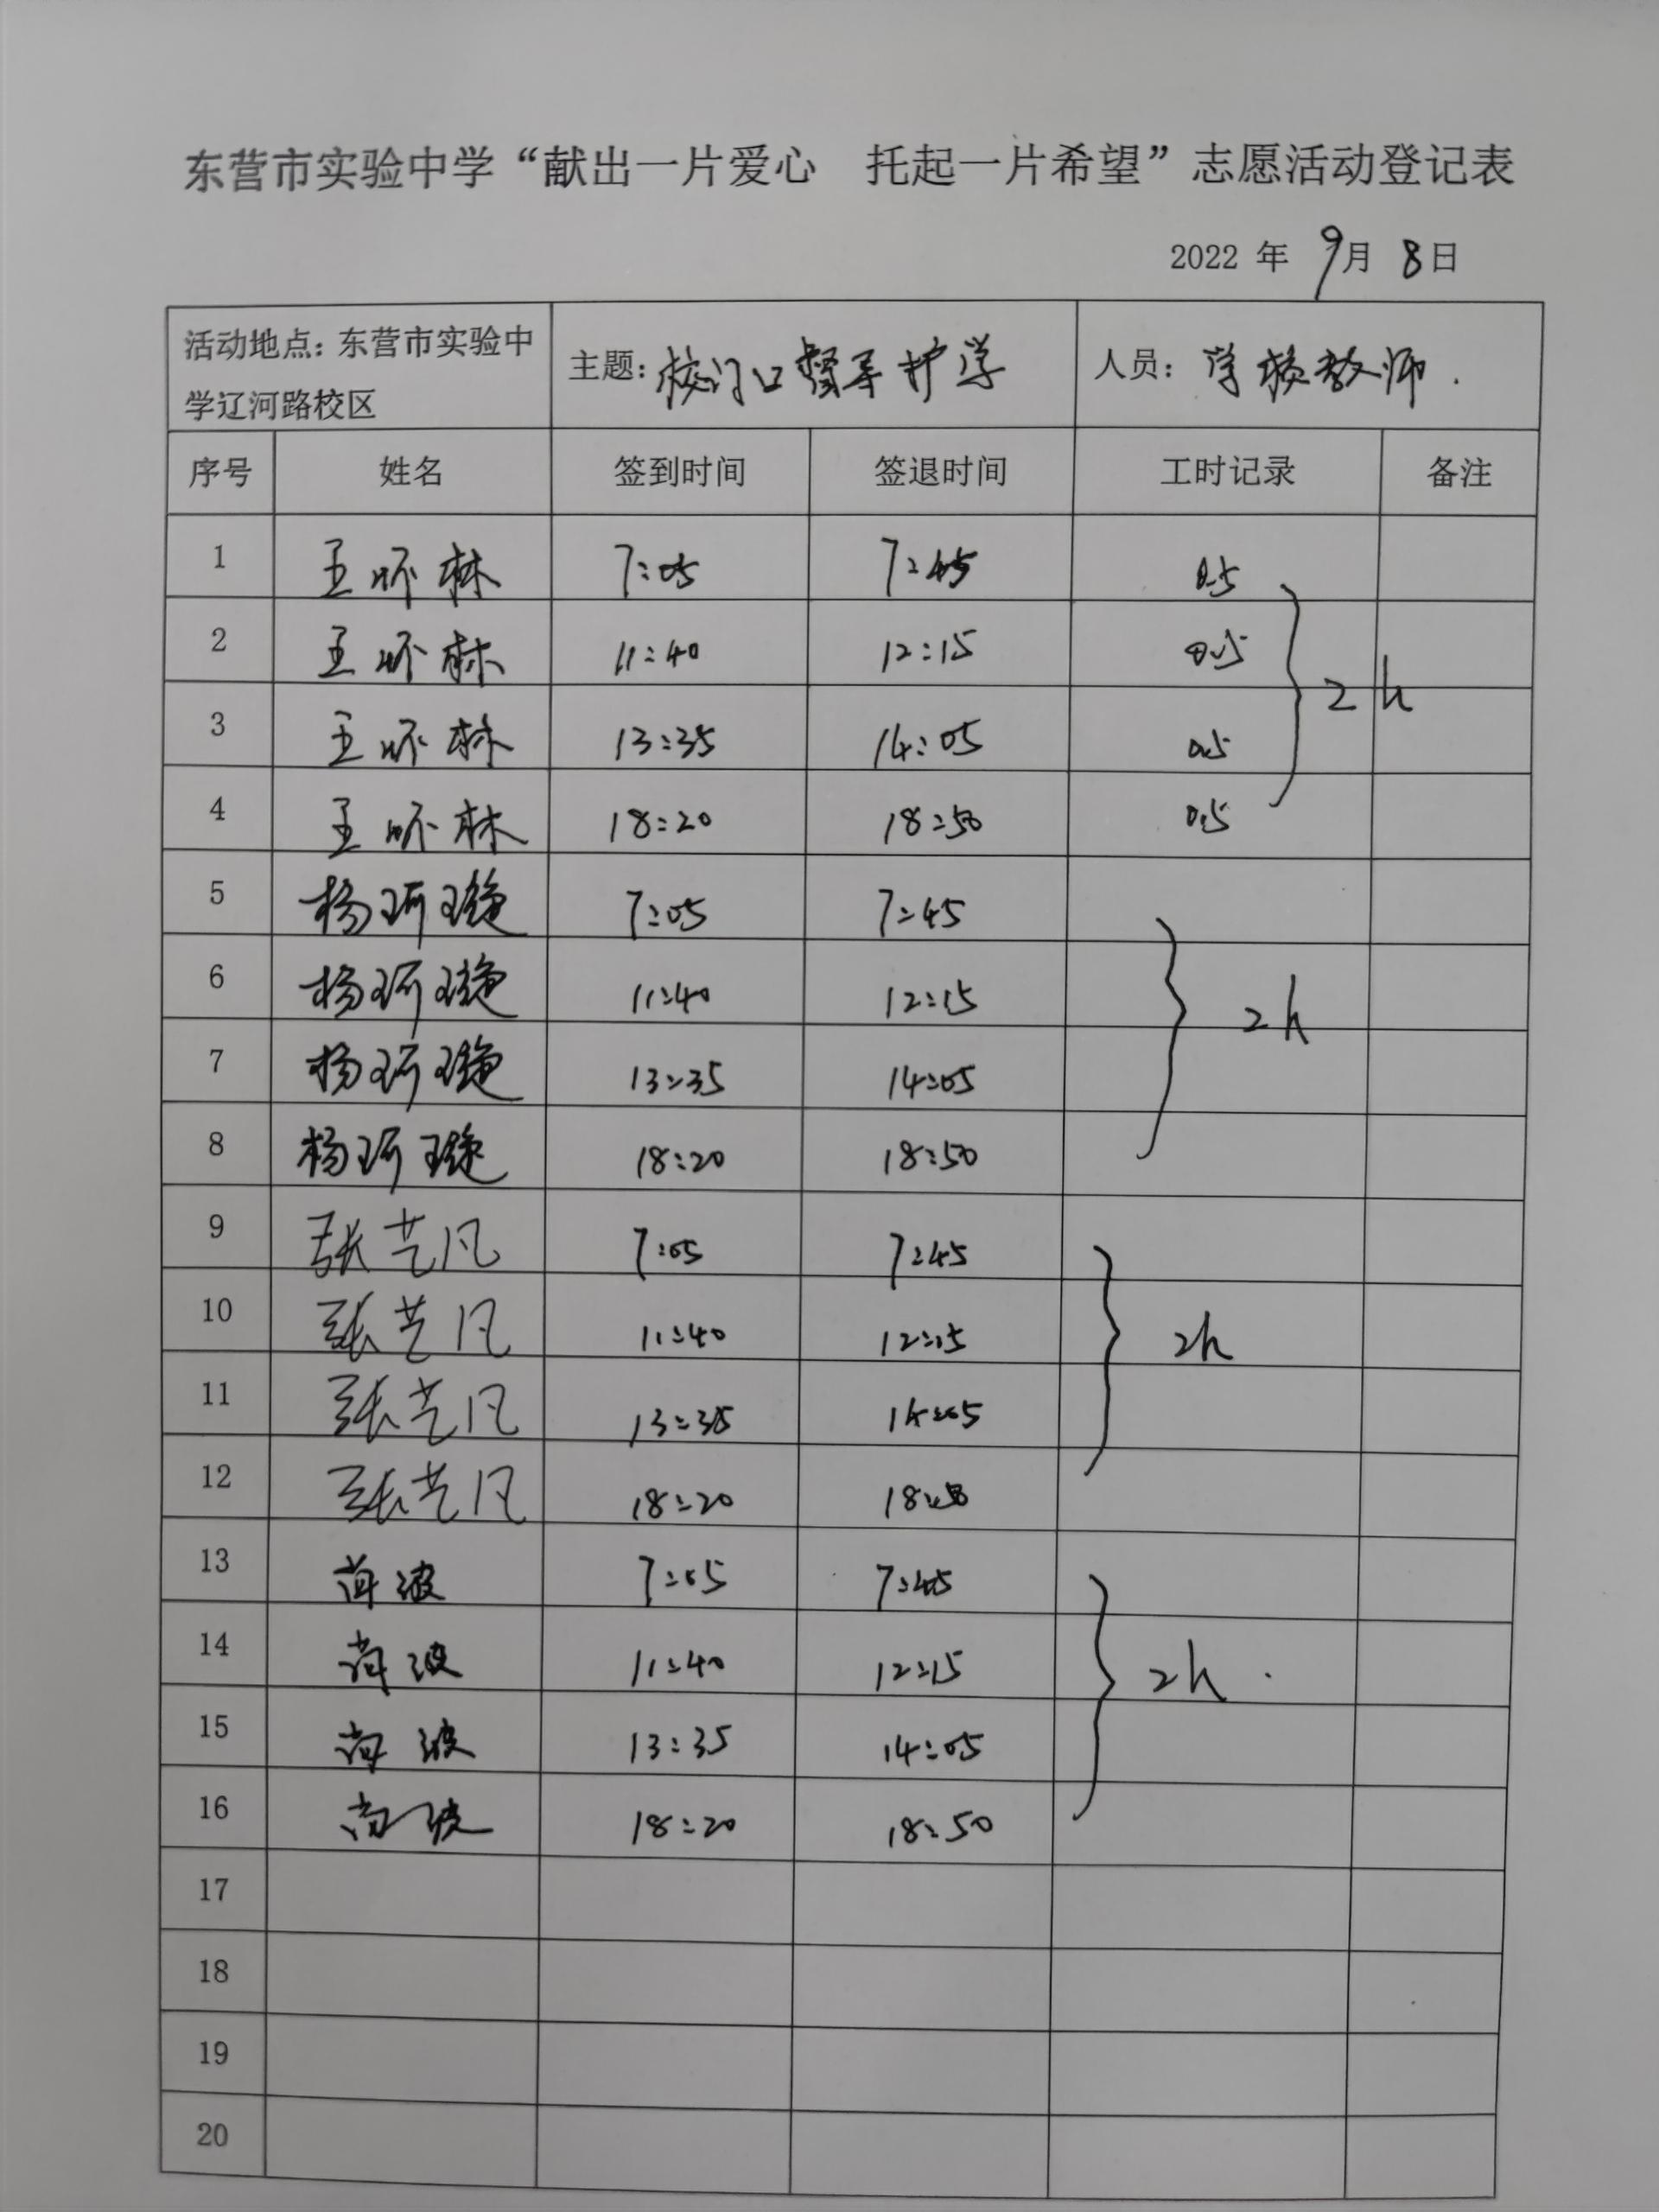 东营市实验中学“献出一片爱心　托起一片希望”志愿活动登记表
2022 年 9月 8日
活动地点：东营市实验中学辽河路校区 主题：校门口督导护学 人员：学校教师.
序号 姓名 签到时间 签退时间 工时记录 备注
1 王怀林 7:05 7:45 0.5
2 王怀林 11:40 12:15 0.5
2h
3 王怀林 13:35 14:05 0.5
4 王怀林 18:20 18:50 0.5
5 杨珂璇 7:05 7:45
6 杨珂璇 11:40 12:15
2h
7 杨珂璇 13:35 14:05
8 杨珂璇 18:20 18:50
9 张艺凡 7:05 7:45
10 张艺凡 11:40 12:15 2h
11 张艺凡 13:35 14:05
12 张艺凡 18:20 18:50
13 尚波 7:05 7:45
14 尚波 11:40 12:15 2h.
15 尚波 13:35 14:05
16 尚波 18:20 18:50
17
18
19
20